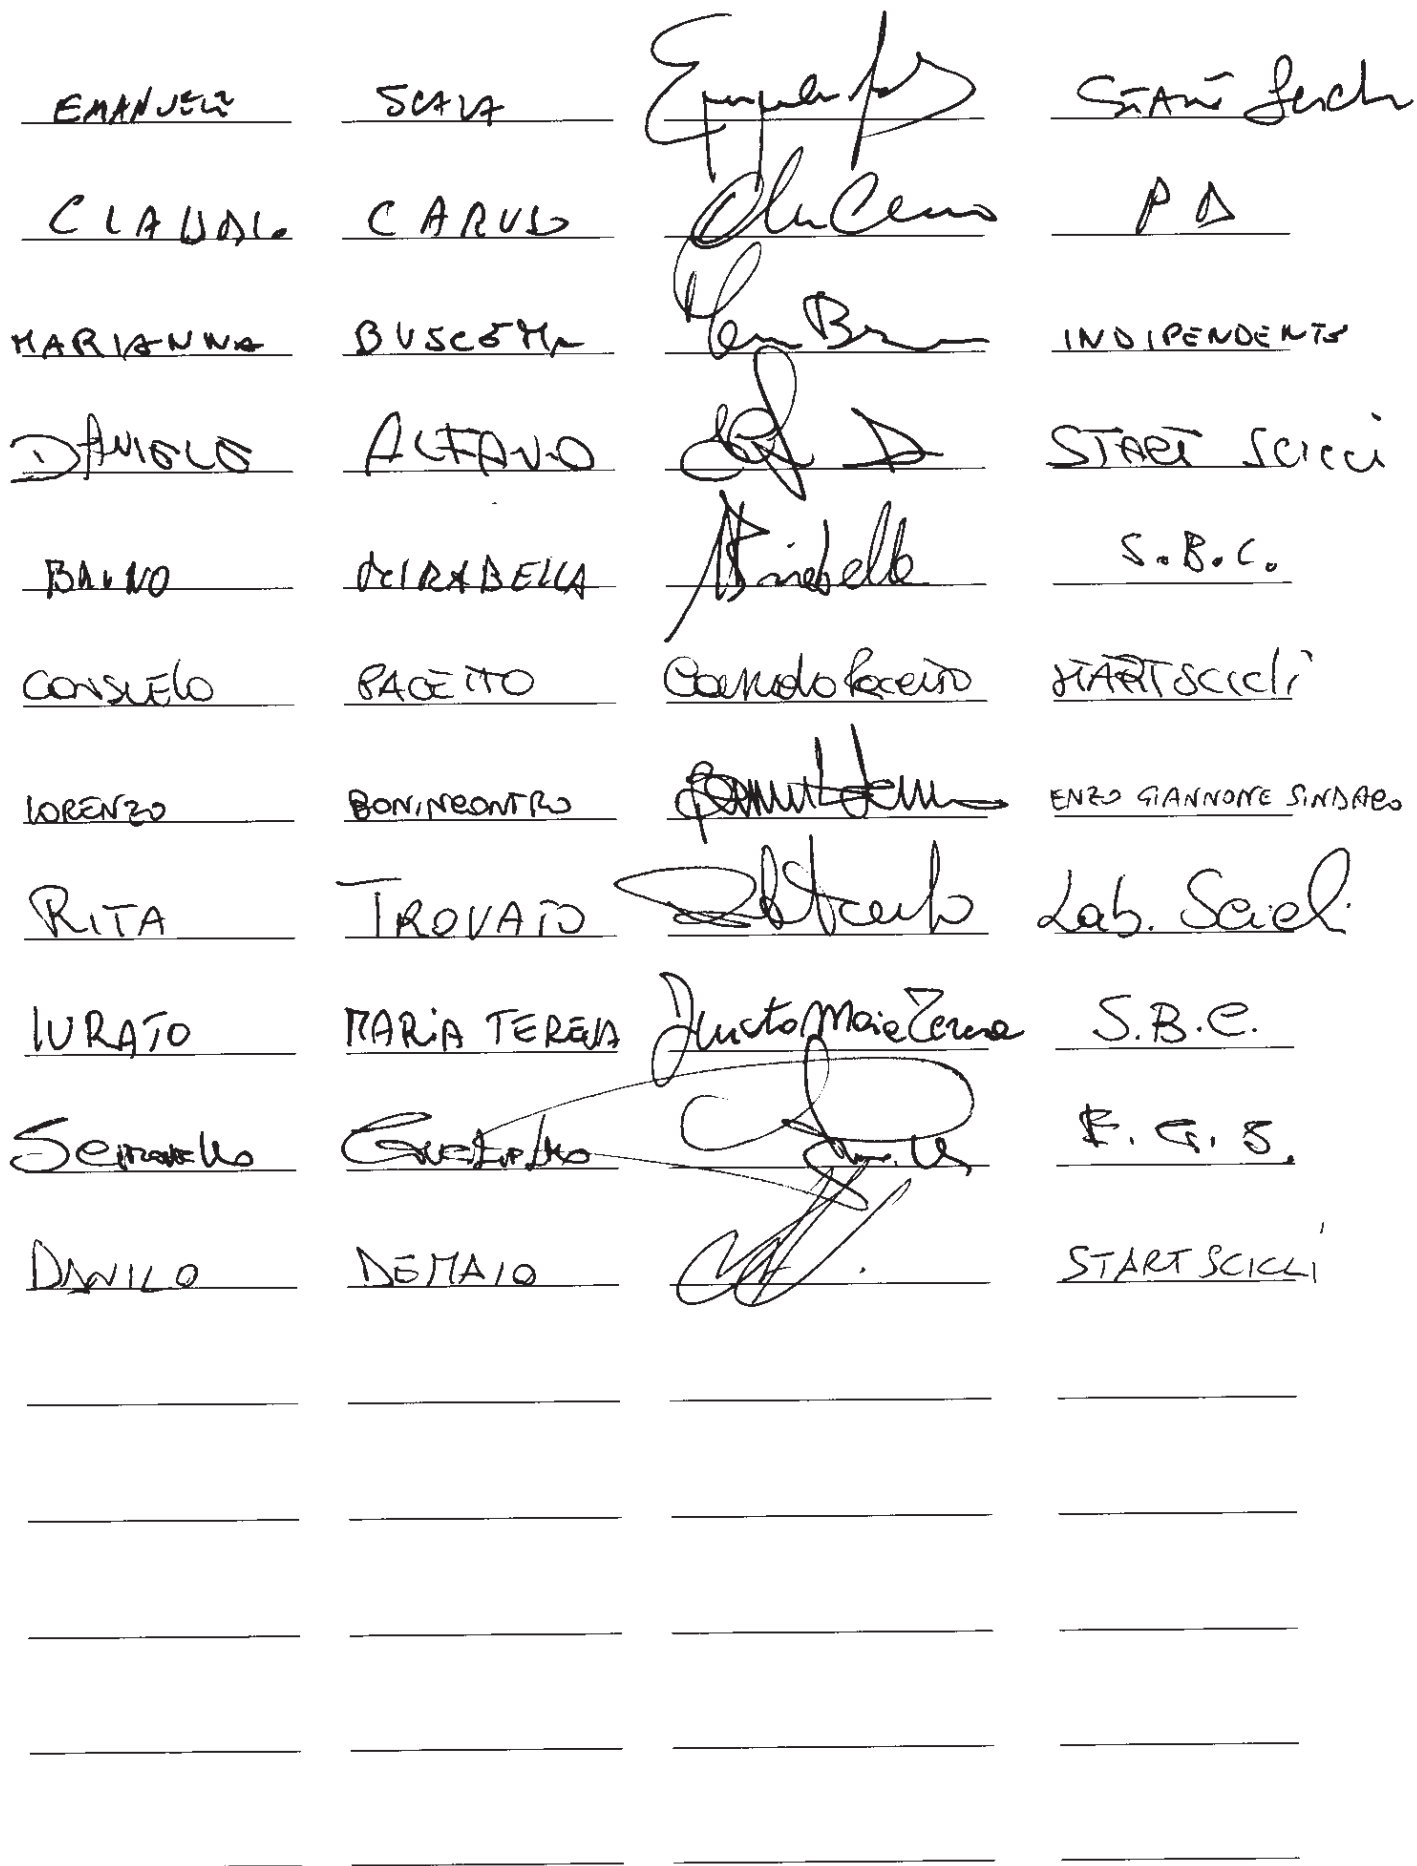 EMANUELE SCALA START Scicli
CLAUDIO CARUSO PD
MARIANNA BUSCEMA INDIPENDENTE
DANIELE ALFANO START SCICLI
BRUNO MIRABELLA Mirabella S.B.C.
CONSUELO PACETTO Consuelo Pacetto START SCICLI
LORENZO BONINCONTRO ENZO GIANNONE SINDACO
RITA TROVATO Lab. Scicli
IURATO MARIA TERESA Iurato Maria Teresa S.B.C.
E.G.S.
DANILO DEMAIO START SCICLI